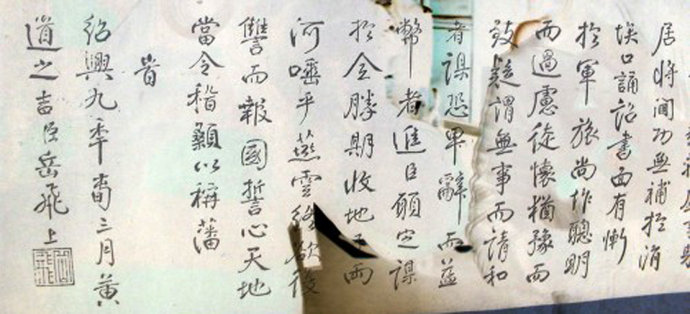 居將閫功無補於涓
埃口誦詔書面有慚
於軍旅尚作聰明
而過慮從懷猶豫而
致疑謂無事而請和
者謀恐卑辭而益
幣者進臣願定謀
於全勝期收地兩
河唾手燕雲終欲復
讐而報國誓心天地
當令稽顙以稱藩
旹
紹興九年旹三月黃
道之吉臣岳飛上